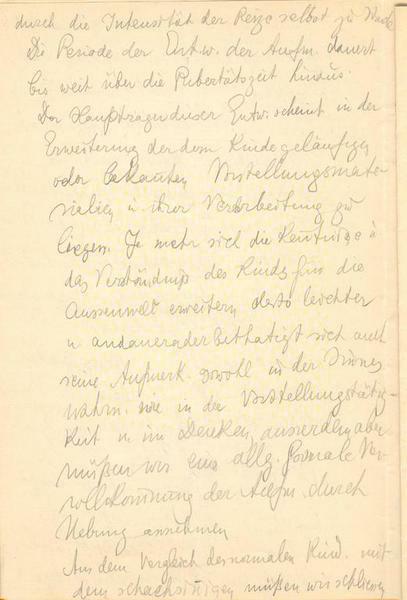 durch die Intensität der Reize selbst zu
Die Periode der Entw. der Aufm. dauert
bis weit über die Pubertätszeit hinaus.
Der Hauptfragen dieser Entw. scheint in der
Erweiterung der dem Kinde geläufigen
oder bekannten Vorstellungsmate-
rialien u. ihrer Verarbeitung zu
liegen. Je mehr sich die Kentnisse u
das Verständniß des Kinds für die
Aussenwelt erweitern desto leichter
u andauernder bethätigt sich auch
seine Aufmerk. sowohl in der Sinnes
wahrn. wie in der Vorstellungstätig-
keit u im Denken, ausserdem aber
müßen wir eine allg. formale Ver
vollkommung der Aufm. durch
Uebung annehmen
Aus dem Vergleich des normalen Kind. mit
dem schwachsinigen müßen wir schliessen